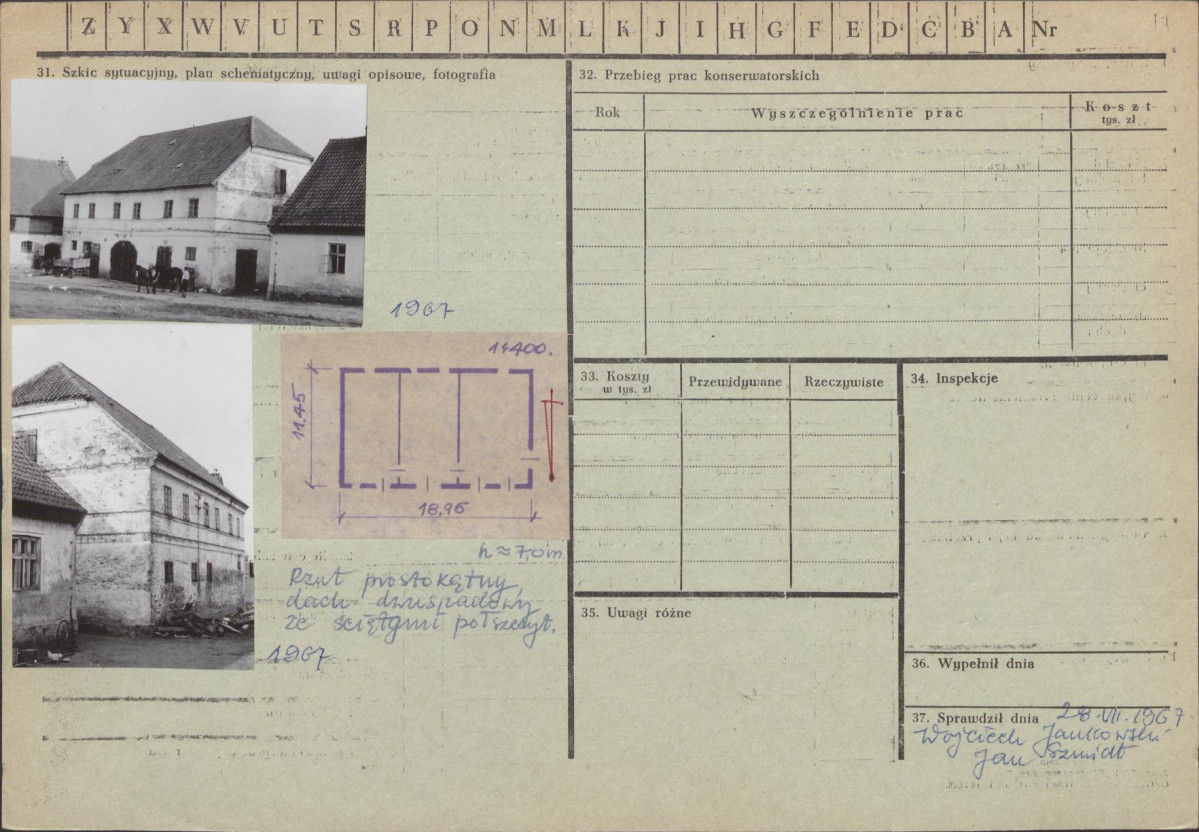 Z Y X W V U T S R P O N M L K J I H G F E D C B A Nr
31. Szkic sytuacyjny, plan schematyczny, uwagi opisowe, fotografia
1967
1:400.
11.45
18,95
h ≈ 7,0 m.
Rzut prostokątny,
dach dwuspadowy
ze ściętymi półszczyt.
1967
32. Przebieg prac konserwatorskich
Rok
Wyszczególnienie prac
Koszt
tys. zł
33. Koszty
w tys. zł
Przewidywane
Rzeczywiste
34. Inspekcje
35. Uwagi różne
36. Wypełnił dnia
37. Sprawdził dnia 28.VII.1967
Wojciech Jankowski
Jan Szmidt